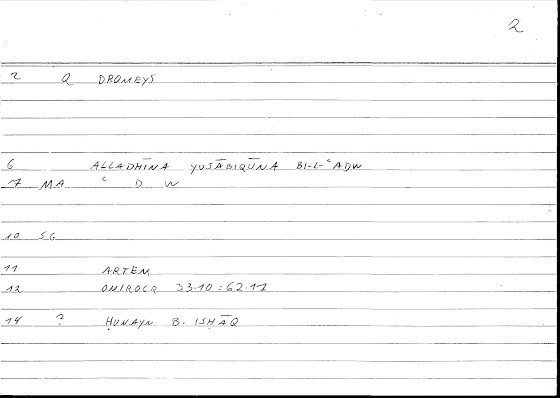 2
2 Q DROMEYS
6 ALLADHĪNA YUSĀBIQŪNA BI-L-ʿADW
7 MA ʿ D W
10 SG
11 ARTEM
12 ONIROCR 33.10:62.11
14 ? ḤUNAYN B. ISḤĀQ